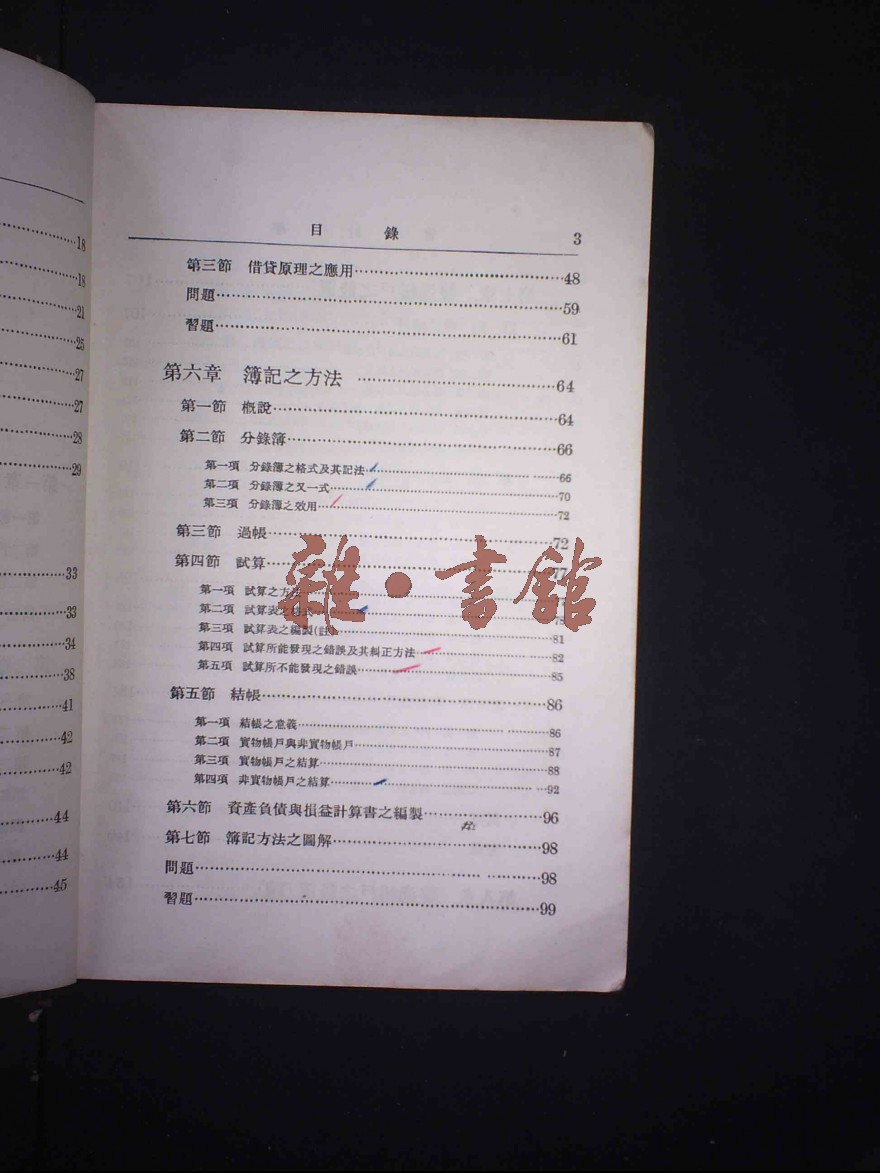 18
18
21
25
27
27
28
29
33
33
34
38
41
42
42
44
44
45
目 錄 3
第三節 借貸原理之應用 48
問題 59
習題 61
第六章 簿記之方法 64
第一節 概說 64
第二節 分錄簿 66
第一項 分錄簿之格式及其記法 66
第二項 分錄簿之又一式 70
第三項 分錄簿之效用 72
第三節 過帳 72
第四節 試算 77
第一項 試算之方法
第二項 試算表之格式
第三項 試算表之編製(註) 81
第四項 試算所能發現之錯誤及其糾正方法 82
第五項 試算所不能發現之錯誤 85
雜·書館
第五節 結帳 86
第一項 結帳之意義 86
第二項 實物帳戶與非實物帳戶 87
第三項 實物帳戶之結算 88
第四項 非實物帳戶之結算 92
第六節 資產負債與損益計算書之編製 96
第七節 簿記方法之圖解 98
問題 98
習題 99